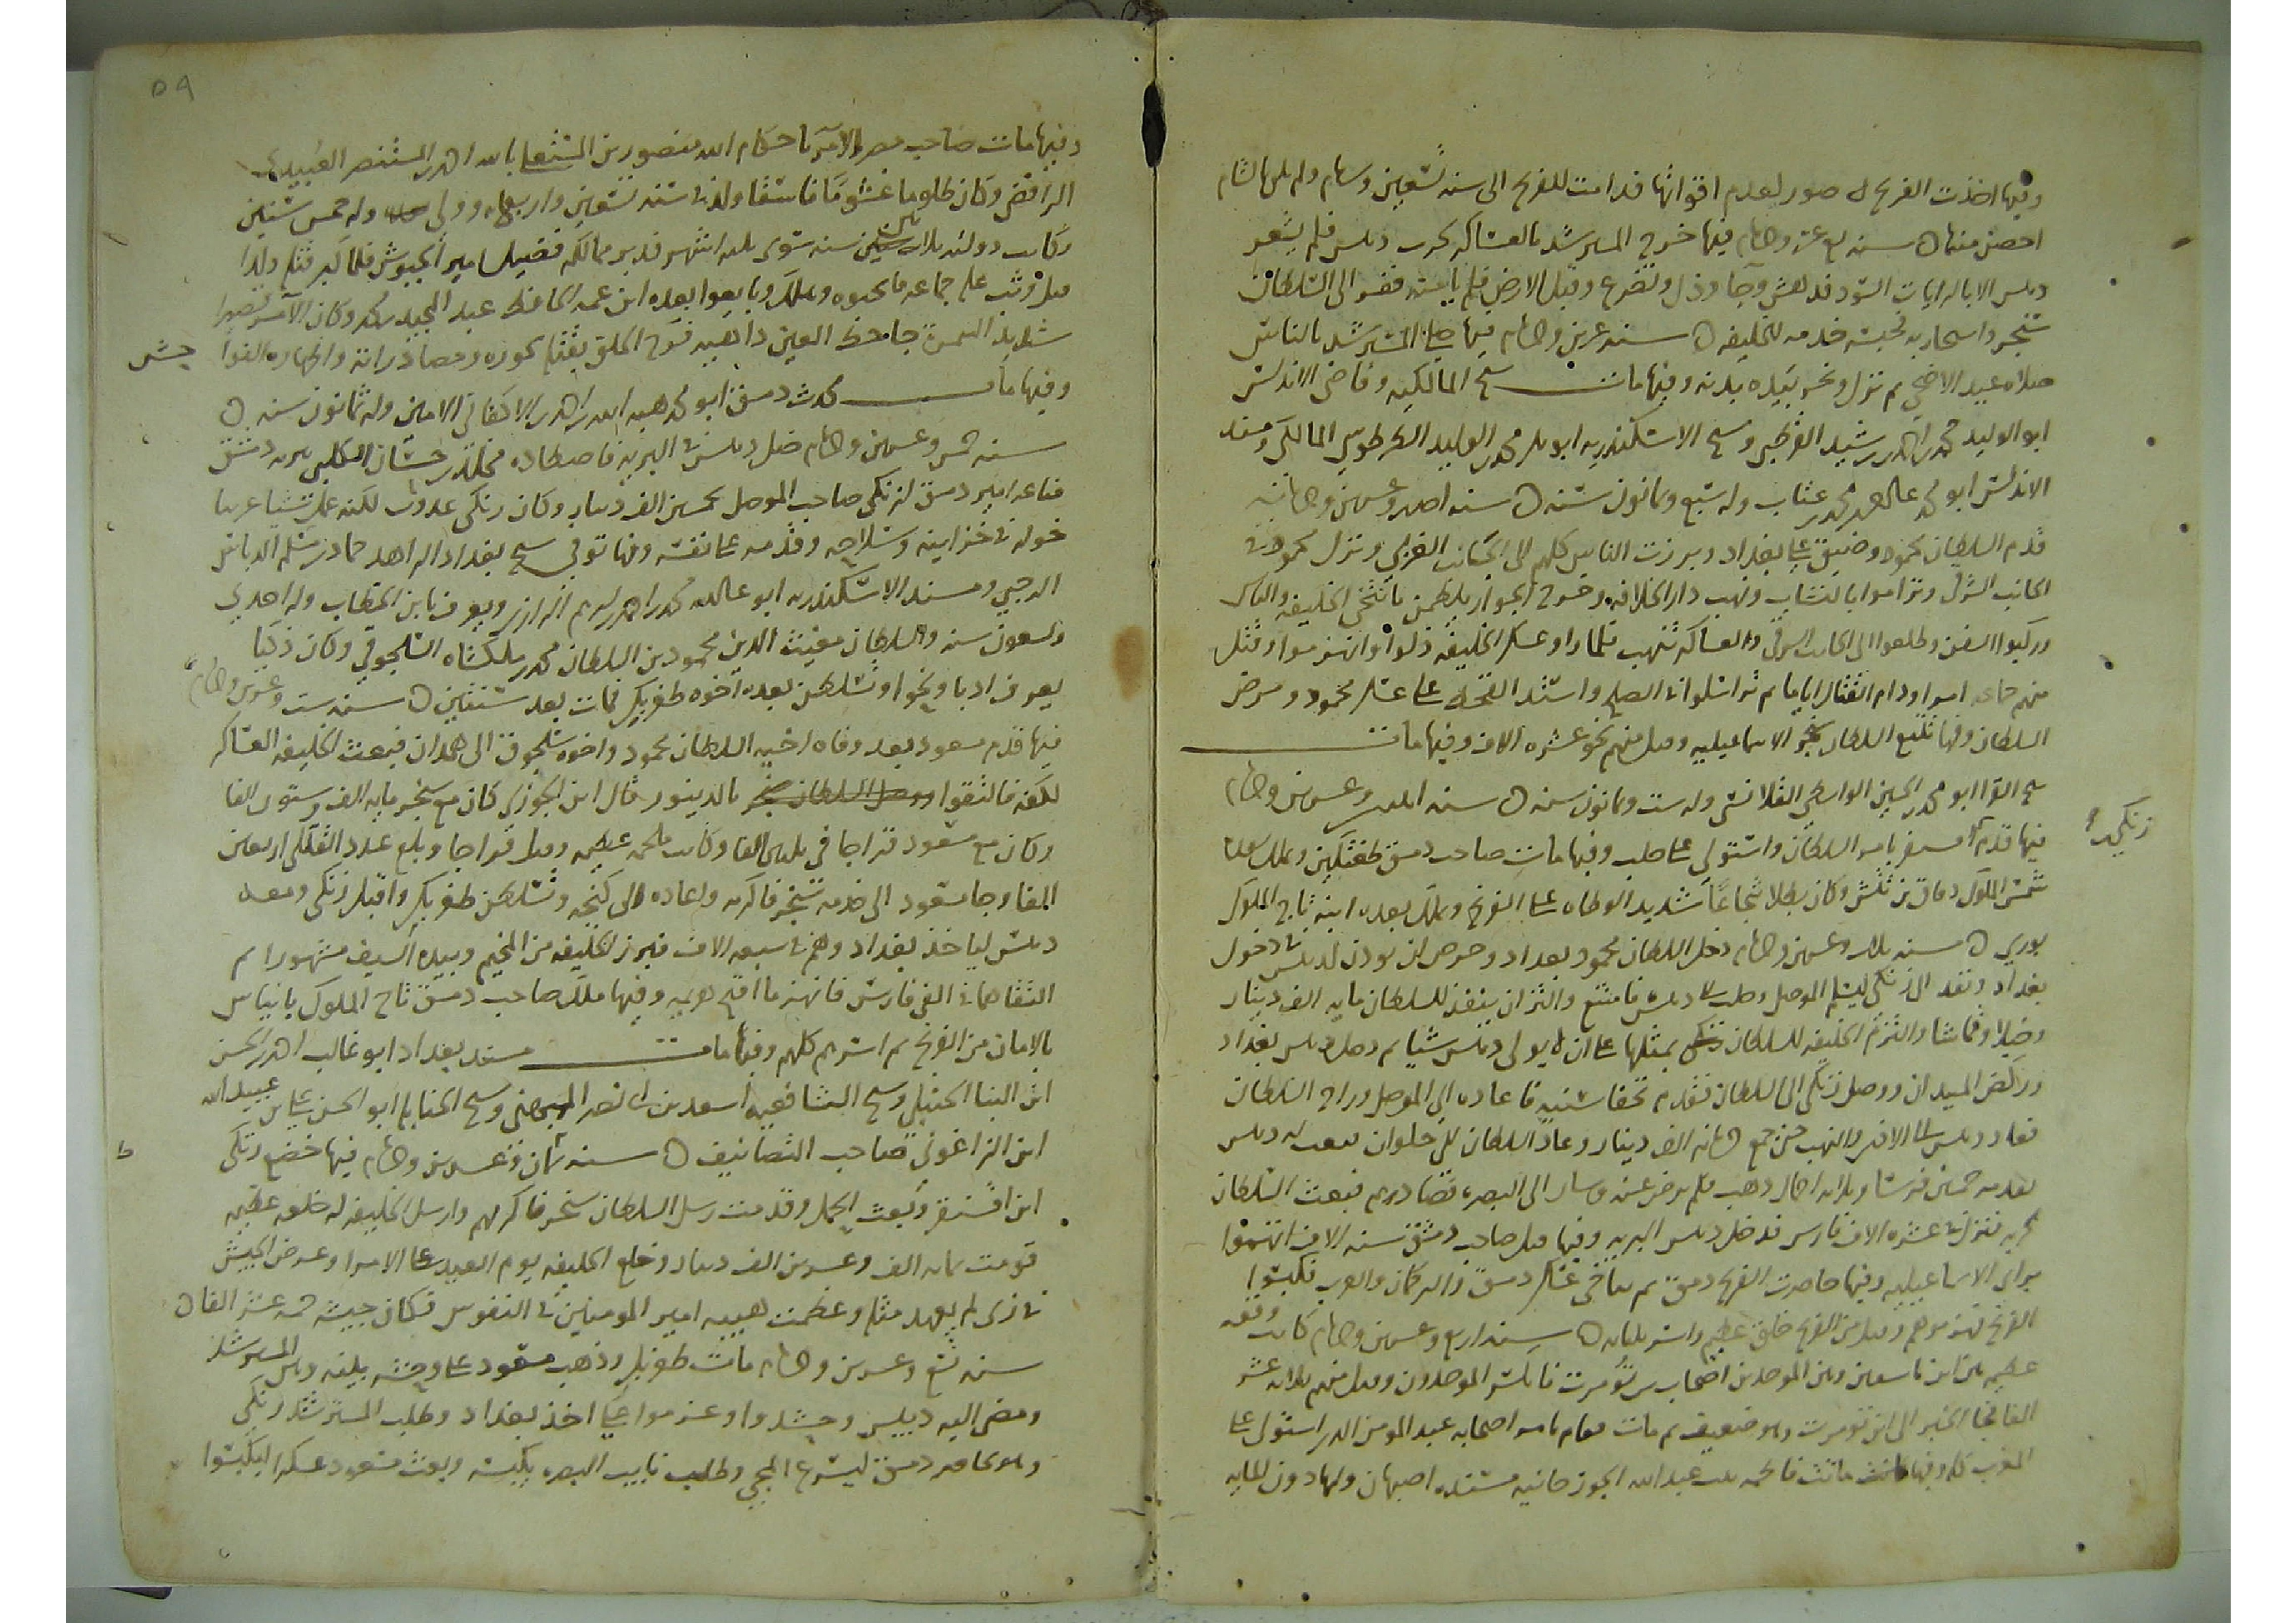 وفيها اخذت الفرنج صور لعدم اقواتها فدامت للفرنج الى سنة تسعين وستمايه ولم يكن بالشام
احصن منها سنه تسع عشره وخمسمايه فيها خرج المسترشد بالعساكر لحرب دبيس فلم يشعر
دبيس الا بالرايات السود فدهش وجا وذل وتضرع وقبل الارض فلم يامنه ففر الى السلطان
سنجر واستجار به فحبسه خدمه للخليفه سنه عشرين وخمسمايه فيها صلى المسترشد بالناس
صلاه عيد الاضحى ثم نزل ونحر بيده بدنه وفيها مات شيخ المالكيه وقاضي الاندلس
ابو الوليد محمد بن احمد بن رشيد القرطبي وشيخ الاسكندريه ابو بكر محمد بن الوليد الطرطوسي المالكي ومسند
الاندلس ابو محمد عبد الرحمن بن محمد بن عتاب وله سبع وثمانون سنه سنه احدى وعشرين وخمسمايه
قدم السلطان محمود وضيق على بغداد وبرزت الناس كلهم الى الجانب الغربي ونزل محمود في
الجانب الشرقي وتراموا بالنشاب ونهب دار الخلافه وخرج الجوار يلطمن بانتخى الخليفه والناس
وركبوا السفن وطلعوا الى الجانب الشرقي والعساكر تنهب فلما راوا عسكر الخليفه ذلوا وانهزموا وقتل
منهم جماعه اسرا ودام القتال اياما ثم تراسلوا في الصلح واشتد القحط على عسكر محمود ومرض
السلطان وفيها تتبع السلطان سنجر الاسماعيليه وقتل منهم نحو عشره الاف وفيها مات
شيخ القرا ابو محمد بن الحسين الواسطي القلانسي وله ست وثمانون سنه سنه اثنتين وعشرين وخمسمايه
فيها قدم زنكي بن اقسنقر بامر السلطان واستولى على حلب وفيها مات صاحب دمشق طغتكين وتملك بعد
شمس الملوك دقاق بن تتش وكان بطلا شجاعا شديد الوطاه على الفرنج وتملك بعده ابنه تاج الملوك
بوري سنه ثلاث وعشرين وخمسمايه دخل السلطان محمود بغداد وحرص ان يوذن لدبيس في دخول
بغداد ونفد الى زنكي ليسلم الموصل وحلب الى دبيس فامتنع والتزم ان ينفذ للسلطان مايه الف دينار
وخيلا وقماشا والتزم الخليفه للسلطان بمثلها على ان لا يولى دبيس شيا ثم دخل دبيس بغداد
وركض الميدان ووصل زنكي الى السلطان فقدم تحفا سنيه فاعاده الى الموصل وراح السلطان
فعاد دبيس الى الافسد والنهب حتى جمع خمسمايه الف دينار وعاد السلطان الى حلوان فبعث له دبيس
تقدمه خمسين فرسا وثلاثه احمال ذهب فلم يرض عنه وسار الى البصره فصادرهم فبعث السلطان
لحربه قزل في عشره الاف فارس فدخل دبيس البريه وفيها قتل صاحب دمشق سته الاف اتهموا
براي الاسماعيليه وفيها حاصرت الفرنج دمشق ثم تناخى عسكر دمشق والتركمان والعرب فكبسوا
الفرنج فهزموهم وقتل من الفرنج خلق عظيم واسر ثلثمايه سنه اربع وعشرين وخمسمايه كانت وقعه
عظيمه بين ابن تاشفين وبين الموحدين اصحاب بن تومرت فانكسر الموحدون وقتل منهم ثلاثه عشر
الفا فجا الخبر الى ابن تومرت وهو ضعيف ثم مات فقام بامر اصحابه عبد المومن الذي استولى على
المغرب كله وفيها ماتت فاطمه بنت عبد الله الجوزدانيه مسنده اصبهان ولها دون المايه
زنكي
٥٩
وفيها مات صاحب مصر الآمر باحكام الله منصور بن المستعلي بالله احمد بن المستنصر العبيدي
الرافضي وكان ظلوما غشوما فاسقا ولد في سنه تسعين واربعمايه وولى وله خمس سنين
وكانت دولته ثلاثين سنه سوى ثلثه اشهر قد دبر ممالكه فضيل امير الجيوش فلما كبر قتله ولما
قتل وثب عليه جماعه فاثخنوه وهلك وبايعوا بعده ابن عمه الحافظ عبد المجيد بن محمد وكان الآمر قصيرا
شديد السمرة جاحظ العين داهيه فرح الخلق بقتله لجوره ومصادراته واظهاره الفواحش
وفيها مات محدث دمشق ابو محمد هبه الله بن احمد بن الاكفاني الامين وله ثمانون سنه
سنه خمس وعشرين وخمسمايه ضل دبيس في البريه فاصطاده مخلد بن حسان الكلبي بقرب دمشق
فباعه امير دمشق لزنكي صاحب الموصل بخمسين الف دينار وكان زنكي عدوه لكنه عمل شيئا عربيا
خوله في خزاينه وسلاحه وقدمه على نفسه وفيها توفي شيخ بغداد الزاهد حماد بن مسلم الدباس
الرحبي ومسند الاسكندريه ابو عبد الله محمد بن احمد بن ابرهيم الرازي ويعرف بابن الحطاب وله احدى
وتسعون سنه والسلطان مغيث الدين محمود بن السلطان محمد بن ملكشاه السلجوقي وكان ذكيا
يعرف ادبا ونحوا وتسلطن بعده اخوه طغربك فمات بعد سنتين سنه ست وعشرين وخمسمايه
فيها قدم مسعود بعد وفاه اخيه السلطان محمود واخوه سلجوق الى همدان فبعث الخليفه العساكر
لكفه فالتقوا بالدينور قال ابن الجوزي كان مع سنجر مايه الف وستون الفا
وكان مع مسعود قراجا في ثلثين الفا وكانت ملحمه عظيمه وقتل قراجا وبلغ عدد القتلى اربعين
الفا وجا مسعود الى خدمه سنجر فاكرمه واعاده الى كنجه وتسلطن طغربك واقبل زنكي ومعه
دبيس لياخذ بغداد وهم في سبعه الاف فبرز الخليفه من المخيم وبيده السيف مشهورا ثم
التقاهما في الفي فارس فانهزما اقبح هزيمه وفيها ملك صاحب دمشق تاج الملوك بانياس
بالامان من الفرنج ثم اسرهم كلهم وفيها مات مسند بغداد ابو غالب احمد بن الحسن
ابن البنا الحنبلي وشيخ الشافعيه اسعد بن ابي نصر الميهني وشيخ الحنابله ابو الحسن علي بن عبيد الله
ابن الزاغوني صاحب التصانيف سنه ثمان وعشرين وخمسمايه فيها خضع زنكي
ابن اقسنقر وبعث الحمل وقدمت رسل السلطان سنجر فاكرمهم وارسل الخليفه له خلعه عظيمه
قومت بمايه الف وعشرين الف دينار وخلع الخليفه يوم العيد على الامرا وعرض الجيش
في زي لم يعهد مثله وعظمت هيبه امير المومنين في النفوس فكان جيشه خمسه عشر الفا
سنه تسع وعشرين وخمسمايه مات طغربك وذهب مسعود على وحشه بينه وبين المسترشد
ومضى اليه دبيس وحشدوا وعزموا على اخذ بغداد وطلب المسترشد زنكي
وهو محاصر دمشق ليسرع المجي وطلب نايب البصره بكبسه وبعث مسعود عسكرا ليكبسوا
حش
ط